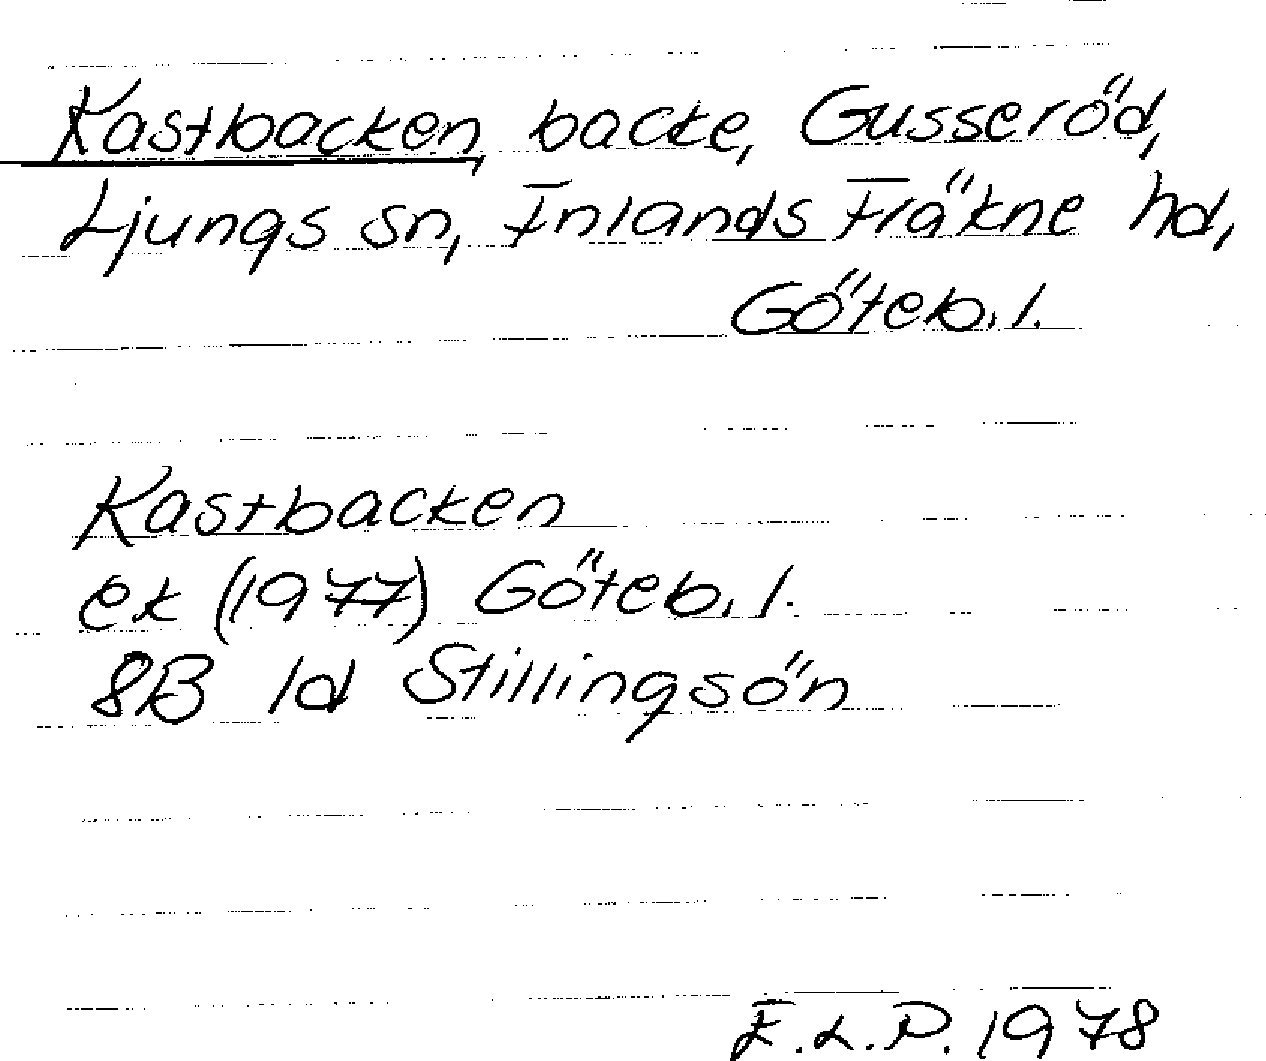 Kastbacken, backe, Gusseröd,
Ljungs sn, Inlands Fräkne hd,
Göteb. l.
Kastbacken
ek (1977) Göteb. l.
8B 1d Stillingsön
E.L.P. 1978